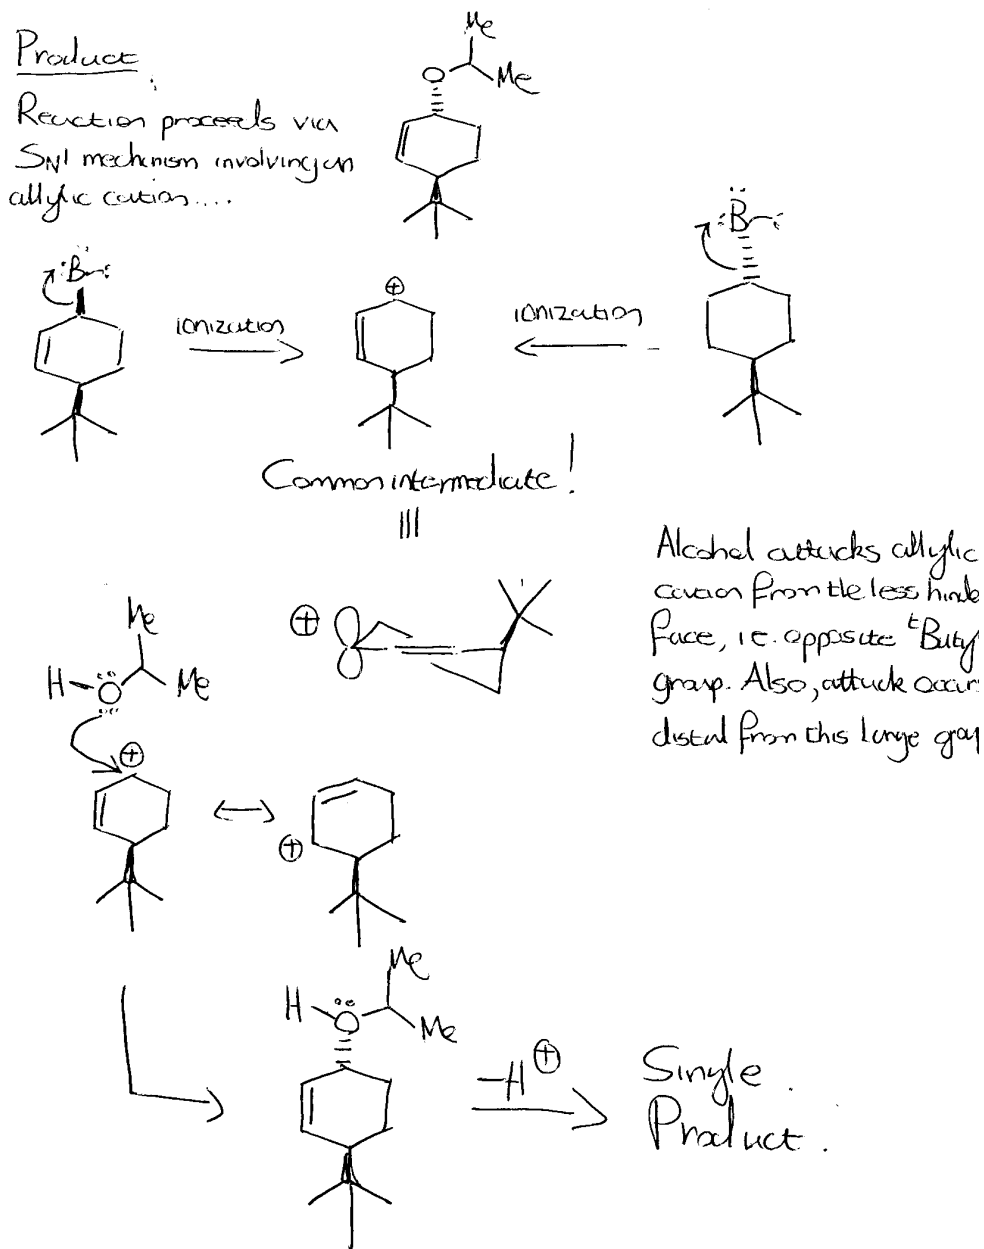 Product
Me
O
Me
Reaction proceeds via
SN1 mechanism involving an
allylic cation....
Br
Br
ionization
⊕
ionization
Common intermediate!
|||
Alcohol attacks allylic
cation from the less hinde
face, i.e. opposite tButy
group. Also, attack occur
distal from this large grou
Me
H-O
Me
⊕
⊕
↔
⊕
Me
H
O
Me
-H⊕
Single
Product.